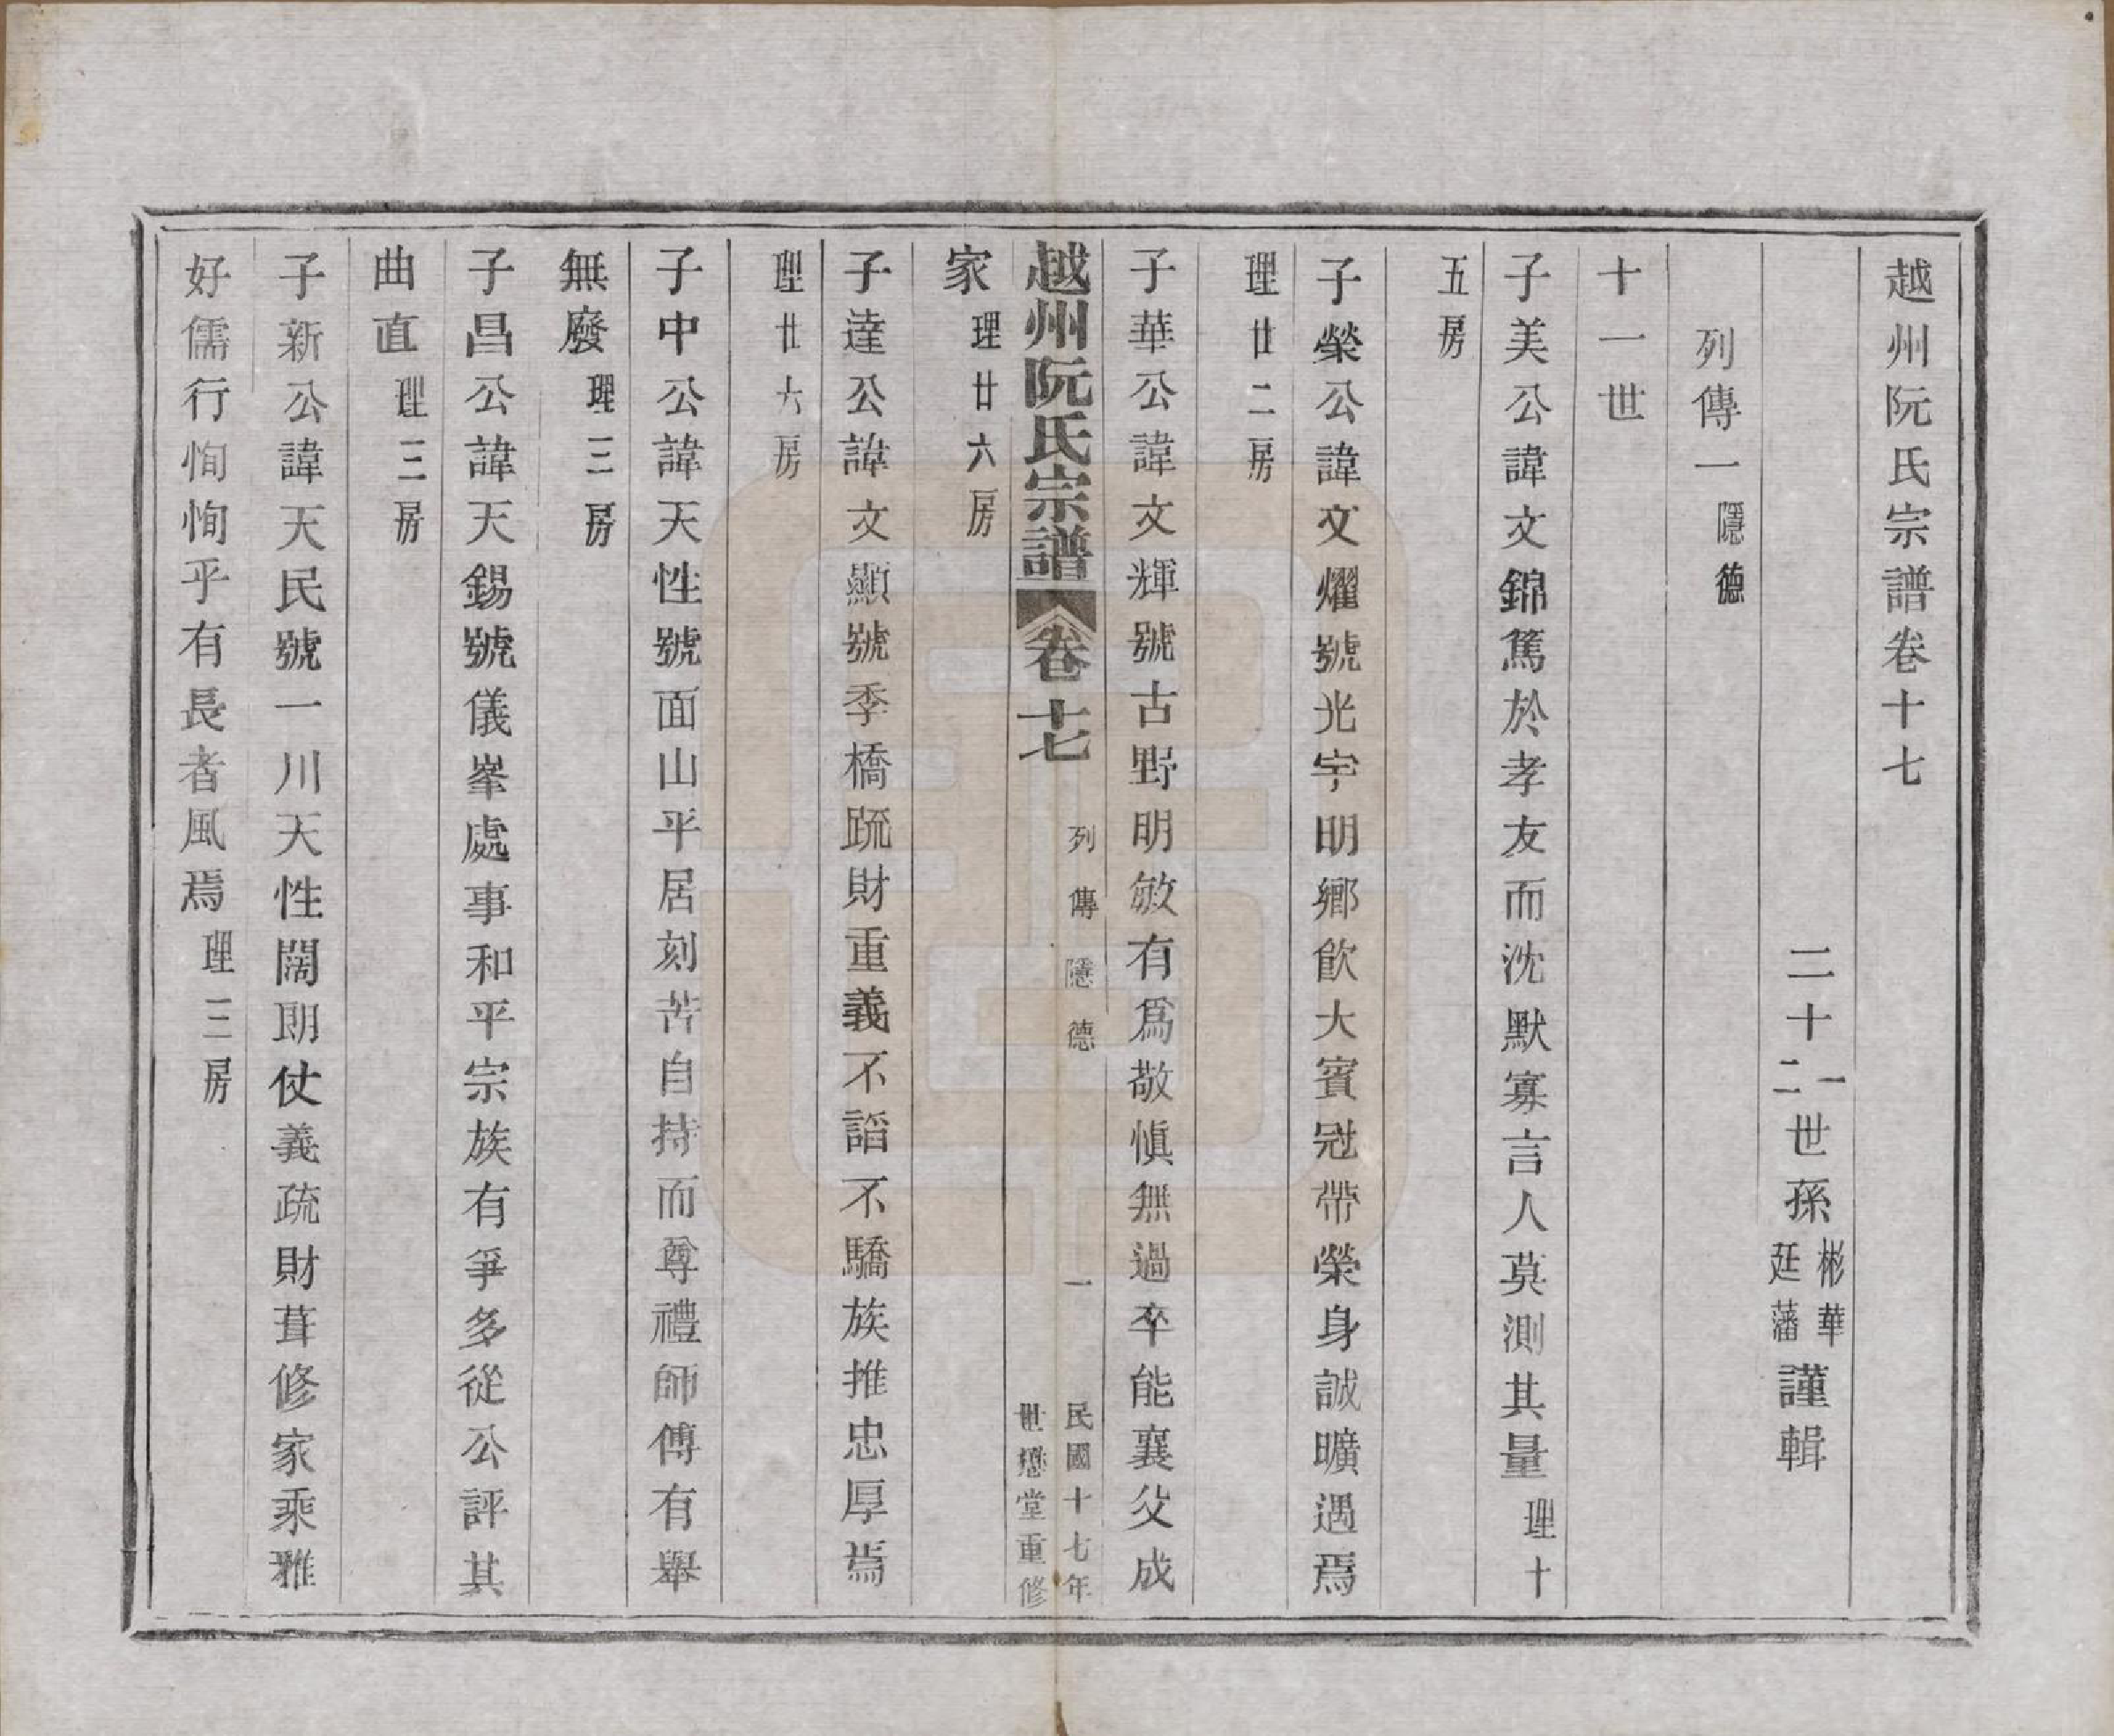 越州阮氏宗譜卷十七
二十一二世孫彬華廷藩謹輯
列傳一隱德
十一世
子美公諱文錦篤於孝友而沈默寡言人莫測其量理十
五房
子榮公諱文燿號光宇明鄉飲大賓冠帶榮身誠曠遇焉
理廿二房
子華公諱文輝號古野明敏有爲敬愼無過卒能襄父成
越州阮氏宗譜卷十七列傳隱德一民國十七年世懋堂重修
家理廿六房
子達公諱文顯號季橋疏財重義不諂不驕族推忠厚焉
理廿六房
子中公諱天性號面山平居刻苦自持而尊禮師傅有舉
無廢理三房
子昌公諱天錫號儀峯處事和平宗族有爭多從公評其
曲直理三房
子新公諱天民號一川天性闊朗仗義疏財葺修家乘雅
好儒行恂恂乎有長者風焉理三房